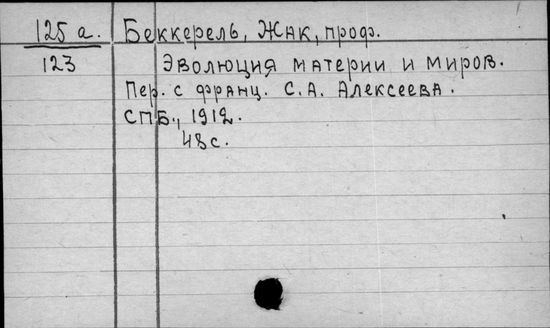 125 а. Беккерель, Жак, проф.
123 Эволюция материи и миров.
Пер. с франц. С.А. Алексеева.
СПБ., 1912.
48 с.